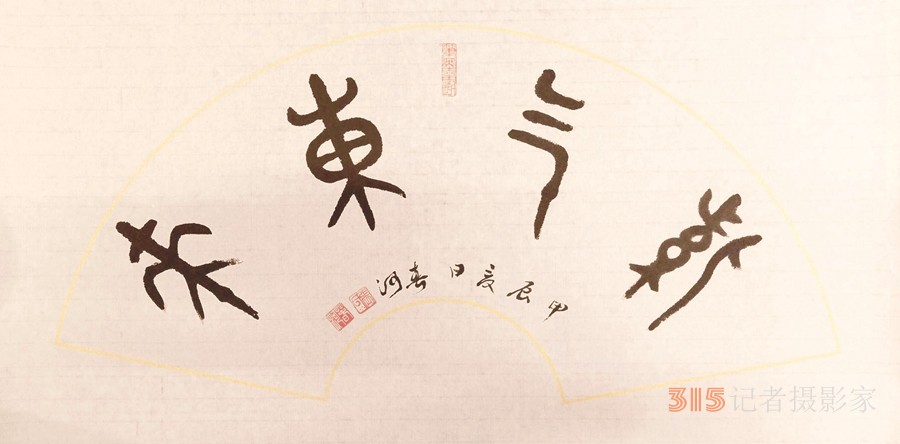 紫气東來
甲辰夏日春河
315记者摄影家